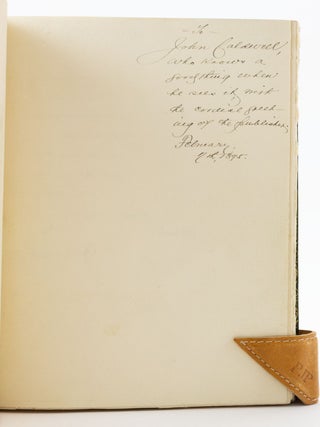 - To -
John Caldwell,
who knows a
good thing when
he sees it, with
the cordial greet-
ing of the publisher,
February
7th, 1895.
PJP